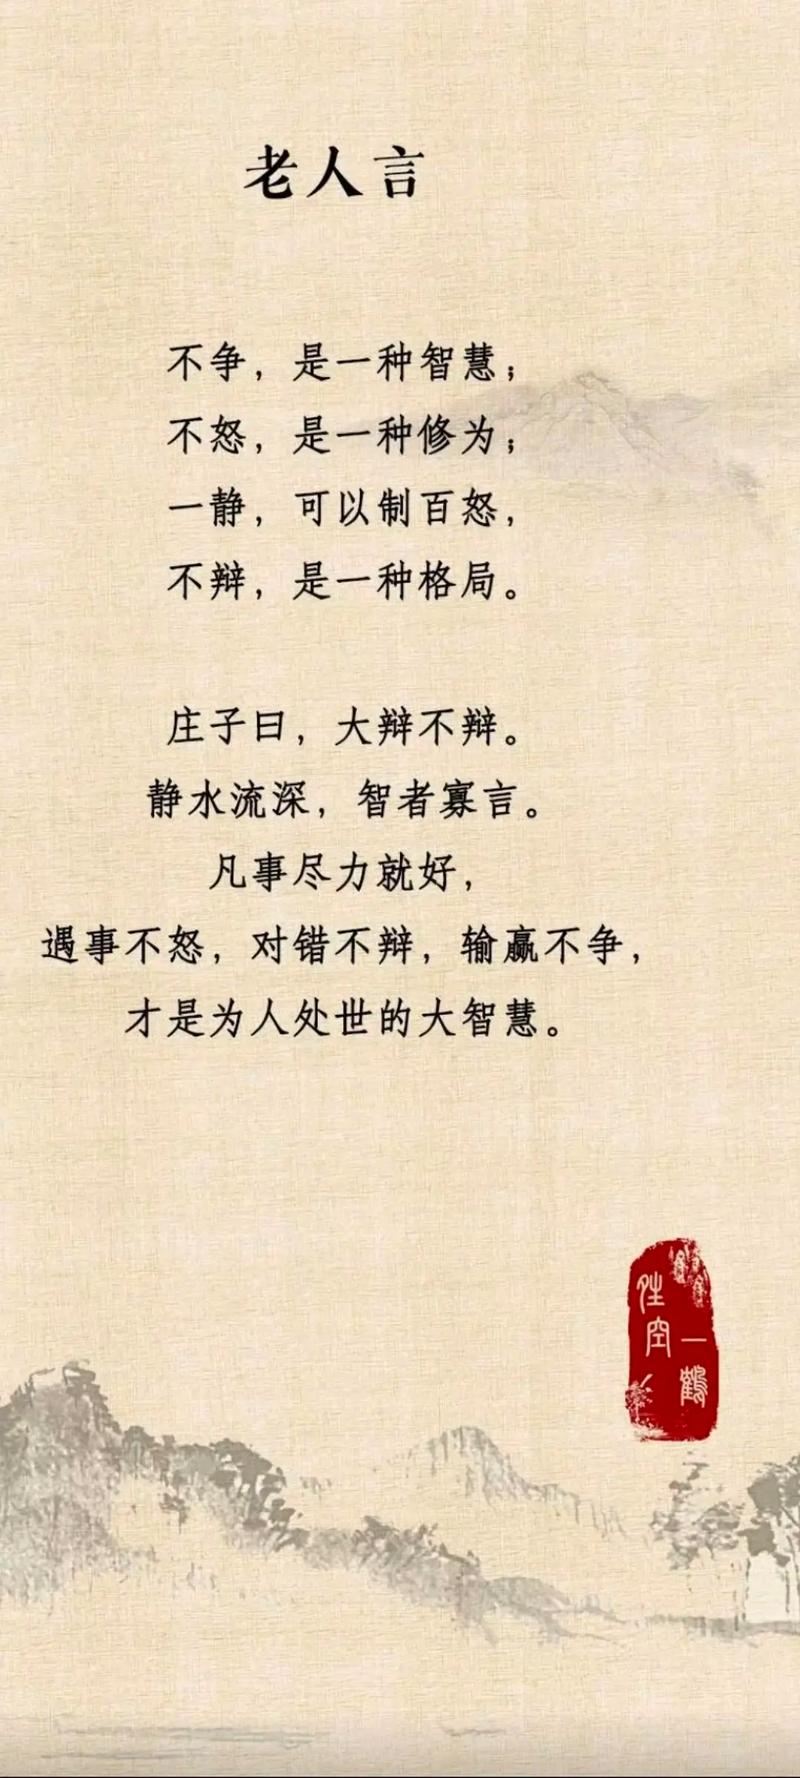 老人言
不争，是一种智慧；
不怒，是一种修为；
一静，可以制百怒，
不辩，是一种格局。
庄子曰，大辩不辩。
静水流深，智者寡言。
凡事尽力就好，
遇事不怒，对错不辩，输赢不争，
才是为人处世的大智慧。
一鹤